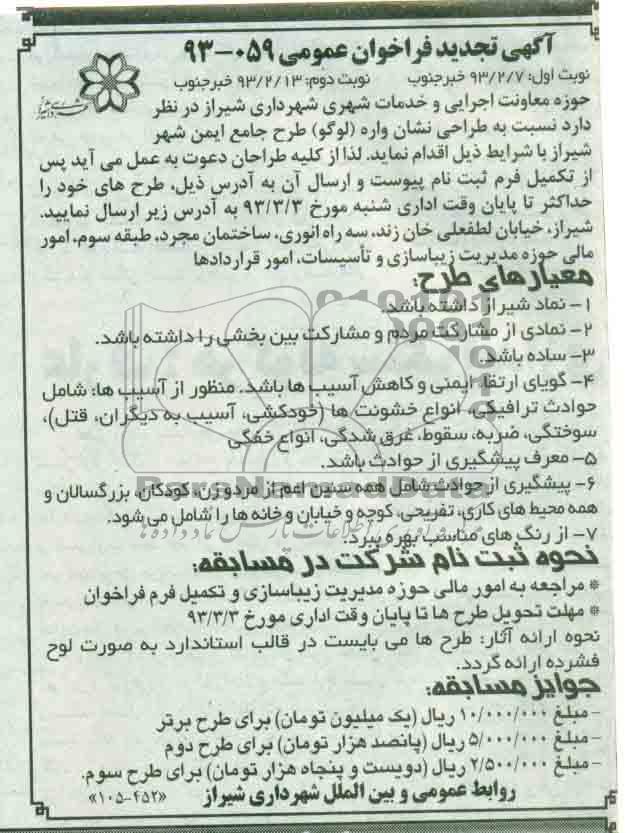 آگهی تجدید فراخوان عمومی ۰۵۹-۹۳
نوبت اول: ۹۳/۲/۷ خبرجنوب نوبت دوم: ۹۳/۲/۱۳ خبرجنوب
حوزه معاونت اجرایی و خدمات شهری شهرداری شیراز در نظر
دارد نسبت به طراحی نشان واره (لوگو) طرح جامع ایمن شهر
شیراز با شرایط ذیل اقدام نماید. لذا از کلیه طراحان دعوت به عمل می آید پس
از تکمیل فرم ثبت نام پیوست و ارسال آن به آدرس ذیل، طرح های خود را
حداکثر تا پایان وقت اداری شنبه مورخ ۹۳/۳/۳ به آدرس زیر ارسال نمایید.
شیراز، خیابان لطفعلی خان زند، سه راه انوری، ساختمان مجرد، طبقه سوم، امور
مالی حوزه مدیریت زیباسازی و تأسیسات، امور قراردادها
معیارهای طرح:
۱- نماد شیراز داشته باشد.
۲- نمادی از مشارکت مردم و مشارکت بین بخشی را داشته باشد.
۳- ساده باشد.
۴- گویای ارتقا، ایمنی و کاهش آسیب ها باشد. منظور از آسیب ها: شامل
حوادث ترافیکی، انواع خشونت ها (خودکشی، آسیب به دیگران، قتل)،
سوختگی، ضربه، سقوط، غرق شدگی، انواع خفگی
۵- معرف پیشگیری از حوادث باشد.
۶- پیشگیری از حوادث شامل همه سنین اعم از مرد و زن، کودکان، بزرگسالان و
همه محیط های کاری، تفریحی، کوچه و خیابان و خانه ها را شامل می شود.
۷- از رنگ های مناسب بهره ببرد.
ParsNamadData
نحوه ثبت نام شرکت در مسابقه:
* مراجعه به امور مالی حوزه مدیریت زیباسازی و تکمیل فرم فراخوان
* مهلت تحویل طرح ها تا پایان وقت اداری مورخ ۹۳/۳/۳
نحوه ارائه آثار: طرح ها می بایست در قالب استاندارد به صورت لوح
فشرده ارائه گردد.
جوایز مسابقه:
- مبلغ ۱۰/۰۰۰/۰۰۰ ریال (یک میلیون تومان) برای طرح برتر
- مبلغ ۵/۰۰۰/۰۰۰ ریال (پانصد هزار تومان) برای طرح دوم
- مبلغ ۲/۵۰۰/۰۰۰ ریال (دویست و پنجاه هزار تومان) برای طرح سوم.
روابط عمومی و بین الملل شهرداری شیراز «۱۰۵-۴۵۲»